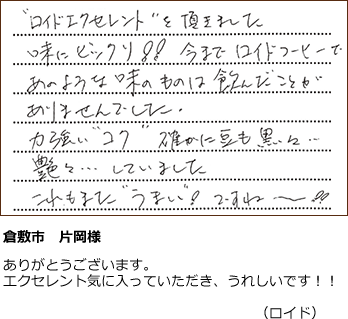 "ロイドエクセレント"を頂きました
味にビックリ!! 今までロイドコーヒーで
あのような味のものは飲んだことが
ありませんでした。
力強い"コク" 確かに豆も黒々…
艶々…していました
これもまた"うまい"! ですね〜!!
倉敷市 片岡様
ありがとうございます。
エクセレント気に入っていただき、うれしいです！！
（ロイド）